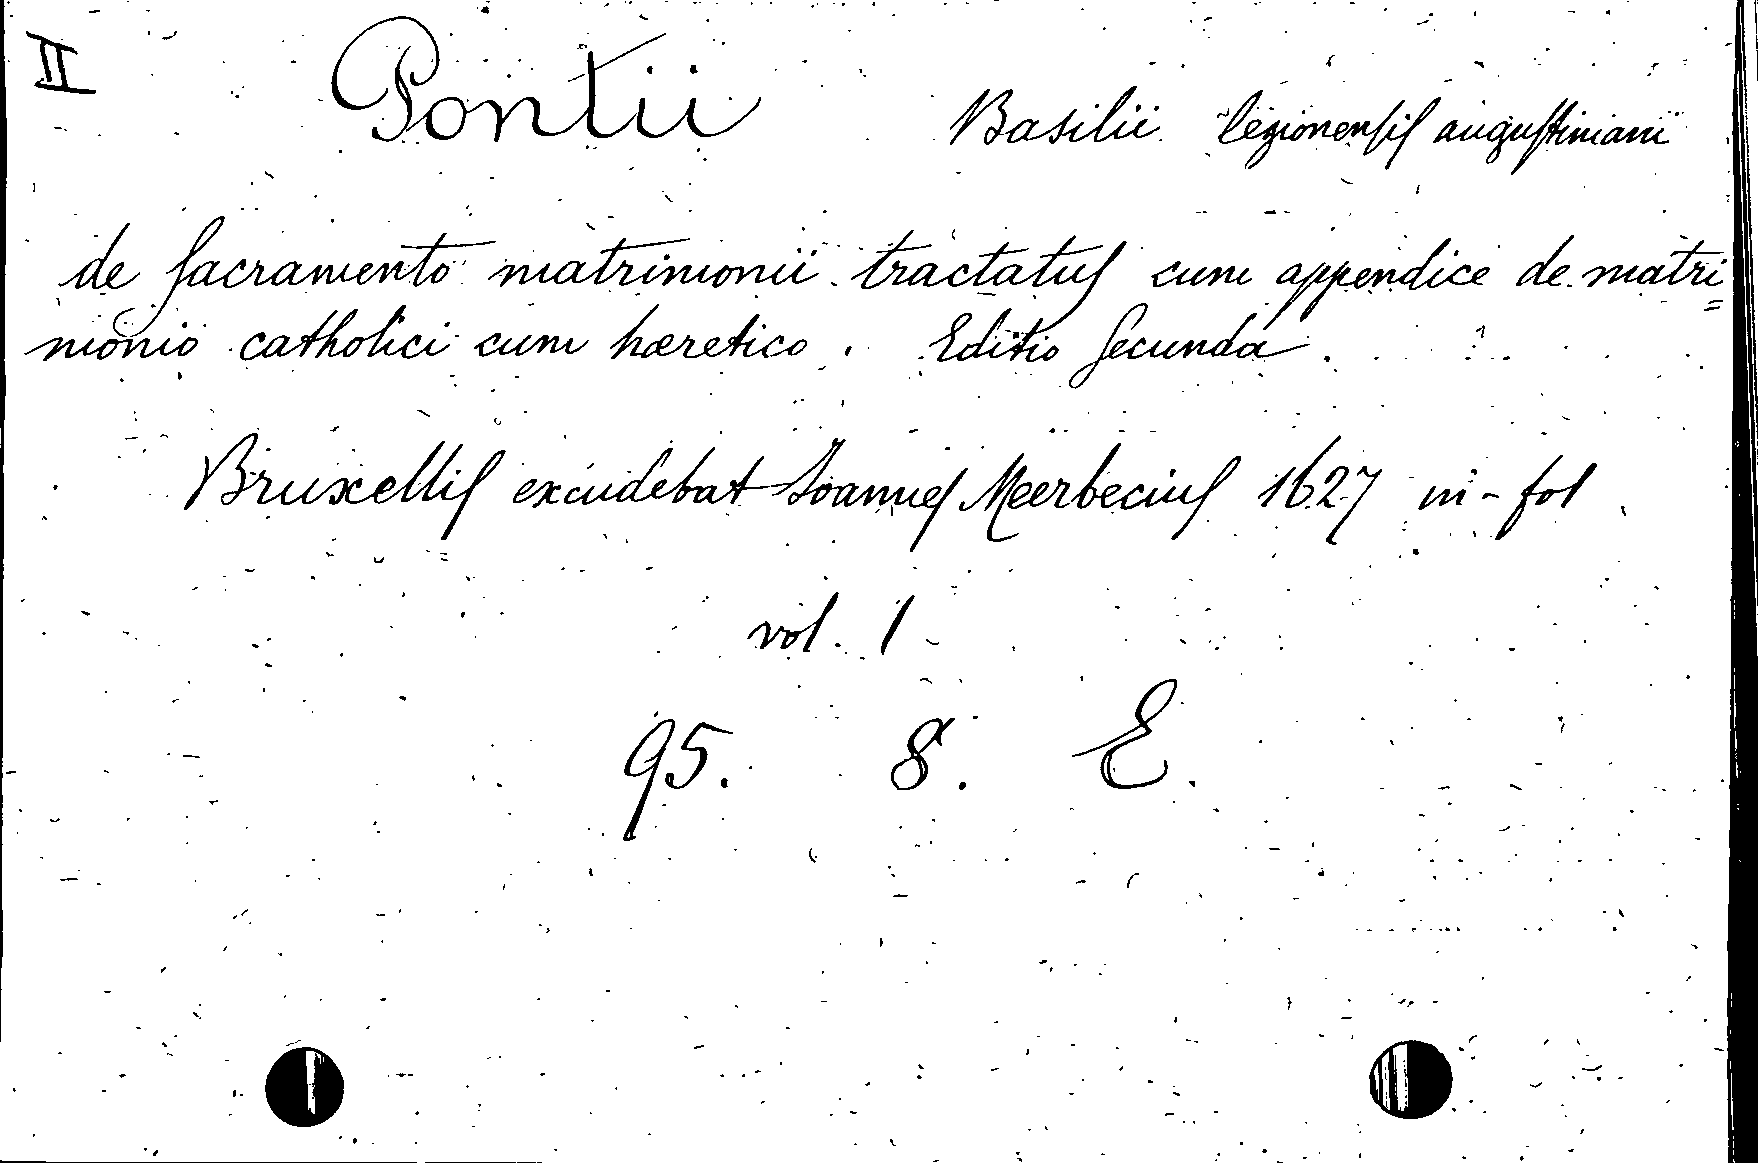 II Pontii Basilii legionensis augustiniani
de sacramento matrimonii tractatus cum appendice de matri=
monio catholici cum hæretico. Editio secunda.
Bruxellis excudebat Ioannes Meerbecius 1627 in-fol
vol. 1
95. 8. E.